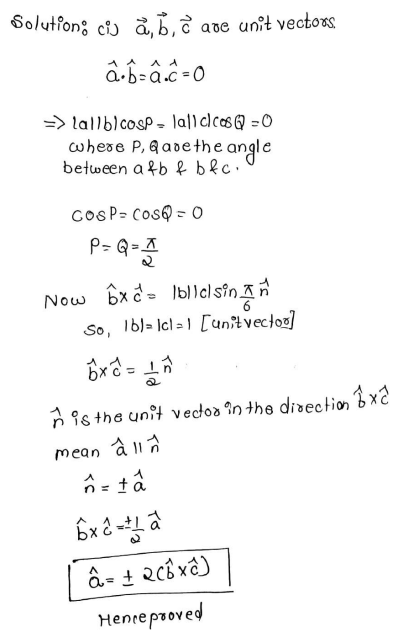 Solution: (i) a⃗, b⃗, c⃗ are unit vectors
â.b̂ = â.ĉ = 0
=> |a||b|cosP = |a||c|cosQ = 0
where P, Q are the angle
between a & b & b & c.
cosP = cosQ = 0
P = Q = π/2
Now b̂ x ĉ = |b||c| sin π/6 n̂
So, |b| = |c| = 1 [unit vector]
b̂ x ĉ = 1/2 n̂
n̂ is the unit vector in the direction b̂ x ĉ
mean â || n̂
n̂ = ± â
b̂ x ĉ = ±1/2 â
â = ± 2(b̂ x ĉ)
Hence proved